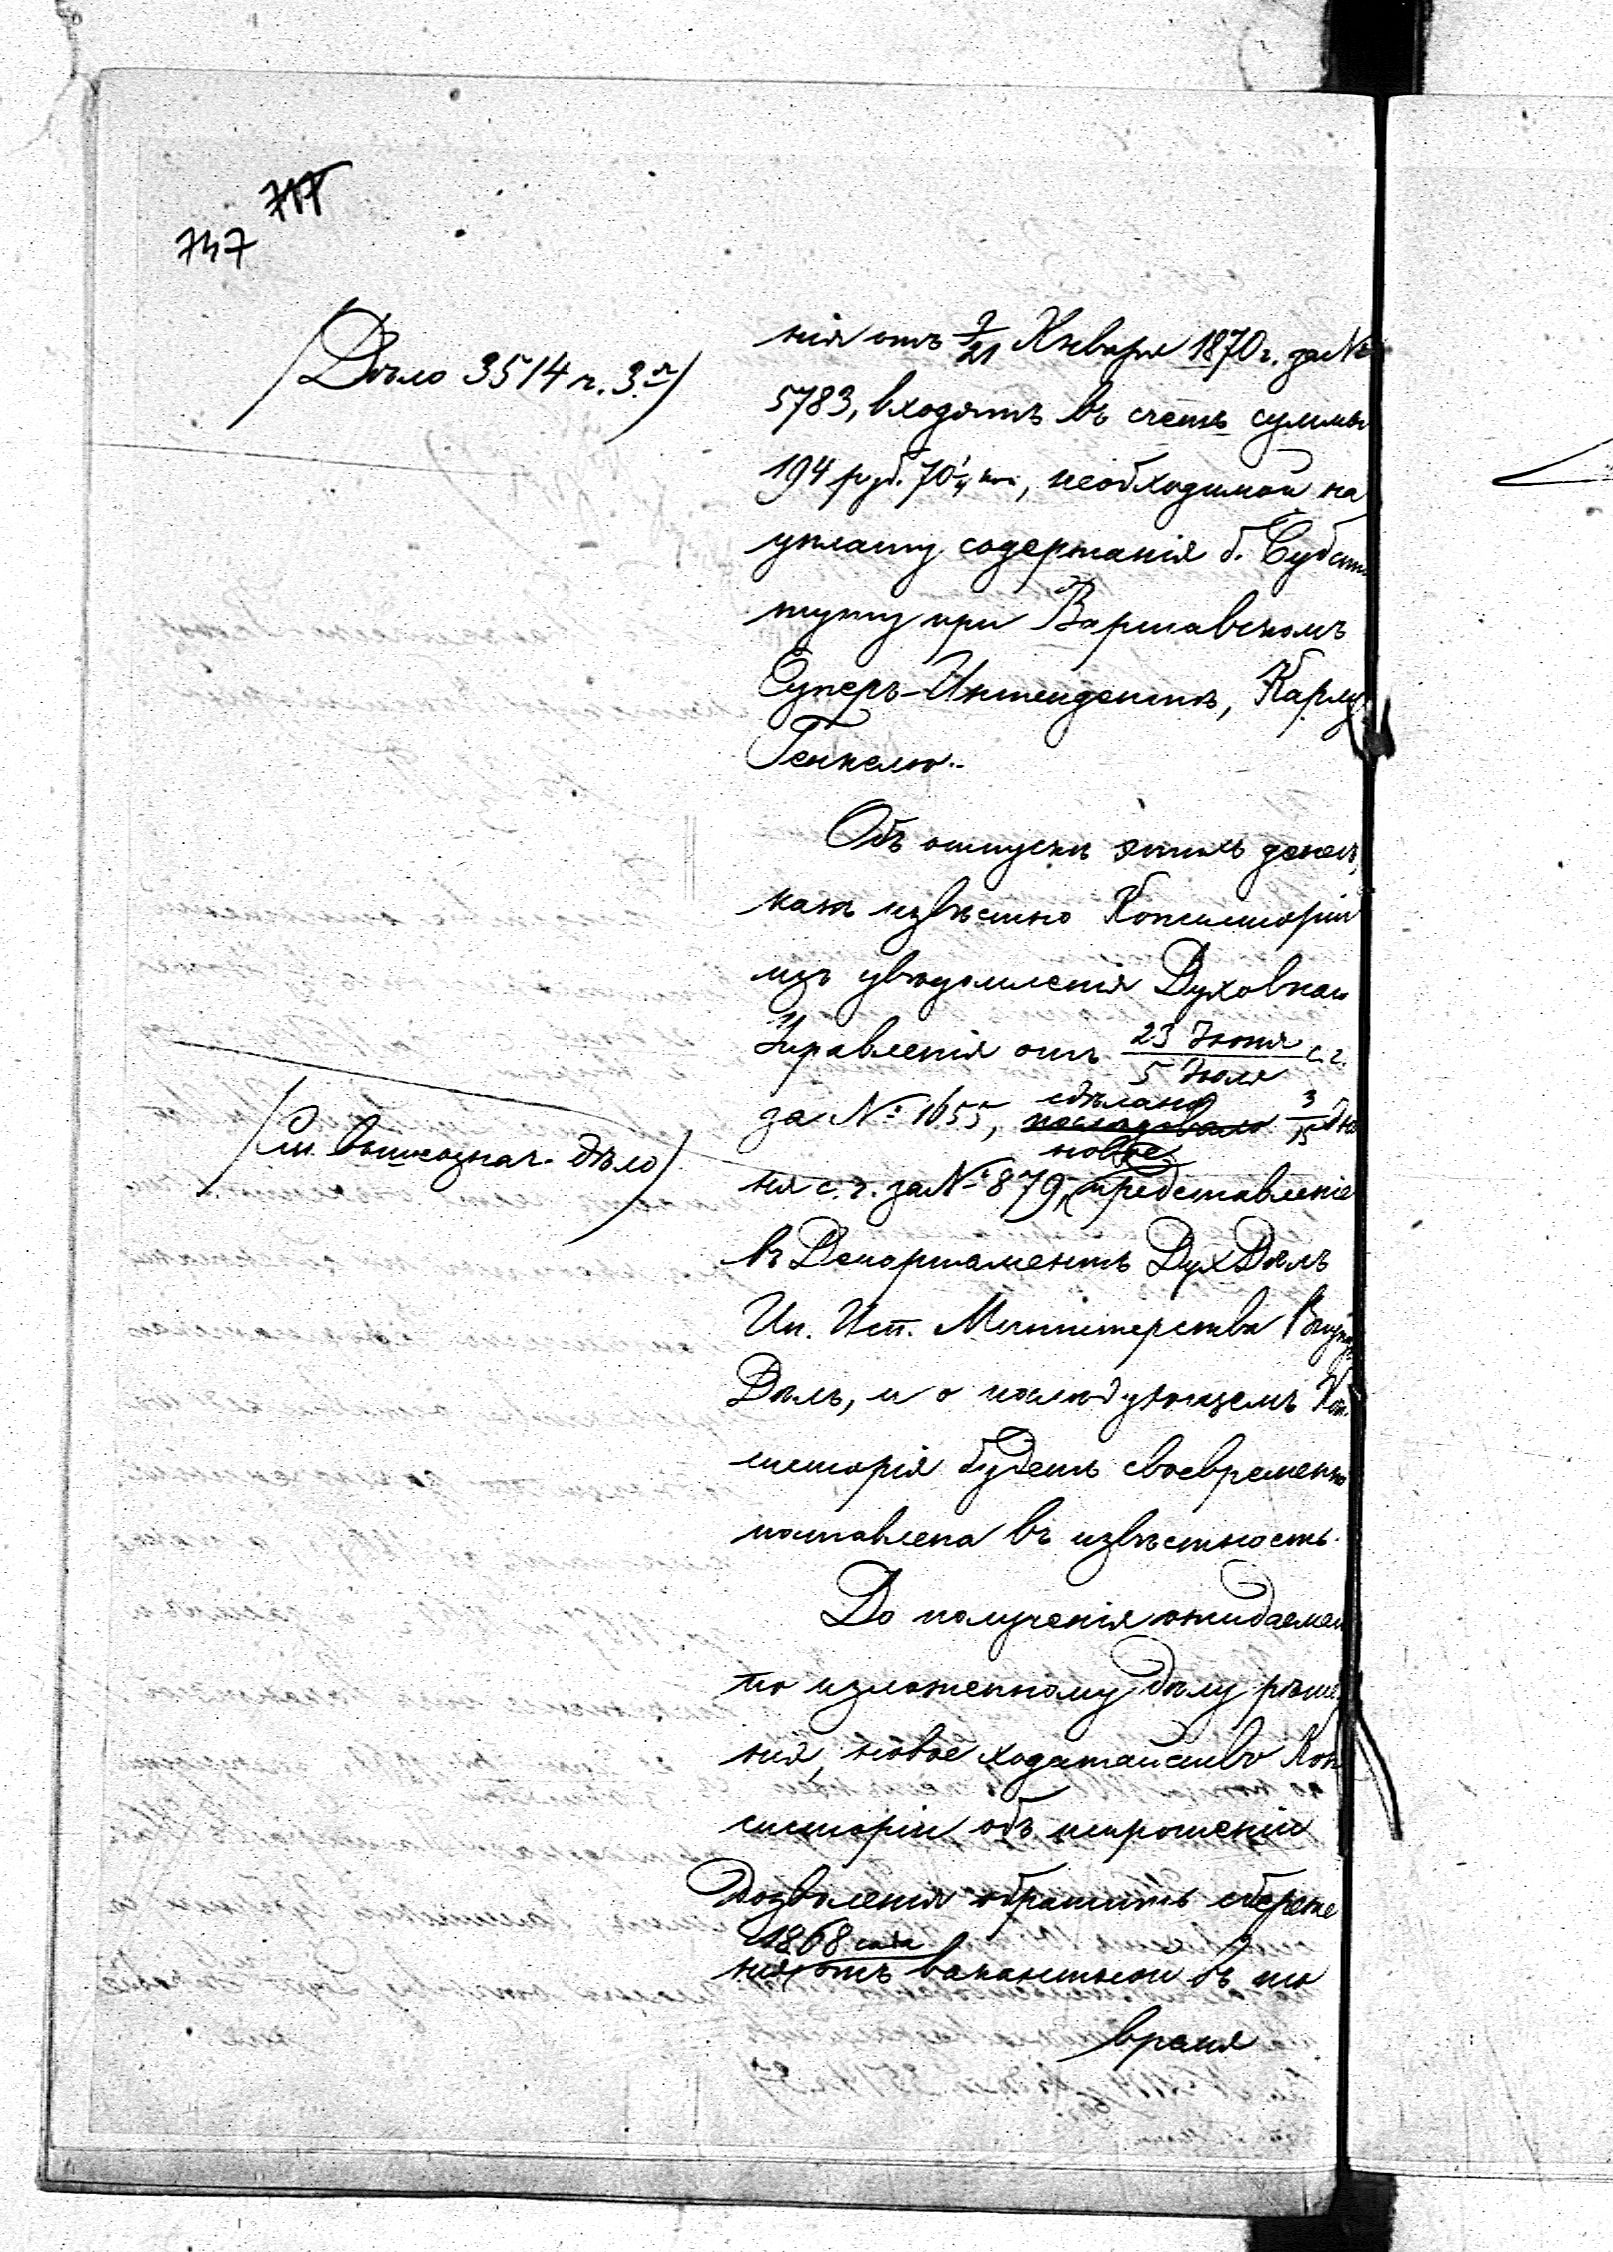 717
747
(Дѣло 3514 г. 3.)
нія отъ 9/21 Января 1870 г. за №
5783, входятъ въ счетъ суммы
194 руб. 70 1/4 коп, необходимой на
уплату содержанія б. Субсти
туту при Варшавскомъ
Суперъ-Интендентѣ, Карлу
Генкелю.
Объ отпускѣ этихъ денегъ,
какъ извѣстно Консисторіи
изъ увѣдомленія Духовнаго
Управленія отъ 23 Іюня/5 Іюля с. г.
за № 1655, послѣдовало сдѣлано 3/15 Ію
ня с. г. за № 879, новое представленіе
(см. вышеознач. дѣло)
въ Департаментъ Дух Дѣлъ
Ин. Исп. Министерства Внутр
Дѣлъ, и о послѣдующемъ Кон
систорія будетъ своевременно
поставлена въ извѣстность.
До полученія ожидаемаго
по изложенному дѣлу рѣше
нія, новое ходатайство Кон
систоріи объ испрошеніи
дозволенія обратить сбереже
нія 1868 года отъ вакантной въ то
время